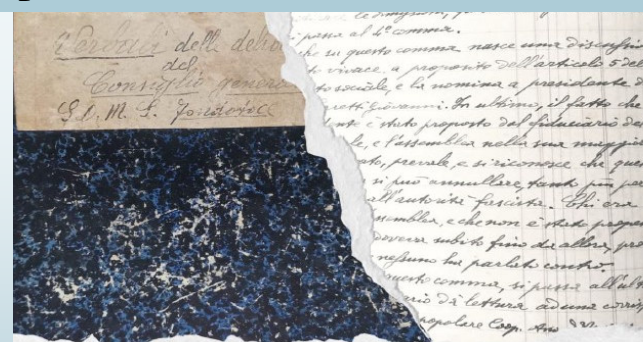 Verbali delle delib
del
Consiglio genera
S. O. M. S.
le dimissioni,
si passa al 4° comma.
che su questo comma nasce una discussio
to vivace, a proposito dell'articolo 5 del
to sociale, e la nomina a presidente d
retti Giovanni. In ultimo, il fatto che
è stato proposto dal fiduciario de
le, e l'assemblea nella sua maggio
to, prevale, e si riconosce che que
si può annullare tanto più
all'autorità fascista. Chi era
semblea, e che non è stato prop
doveva subito fino da allora, pro
nessuno ha parlato contro.
questo comma, si passa all'ult
ario dà lettura ad una corris
popolare Coop.